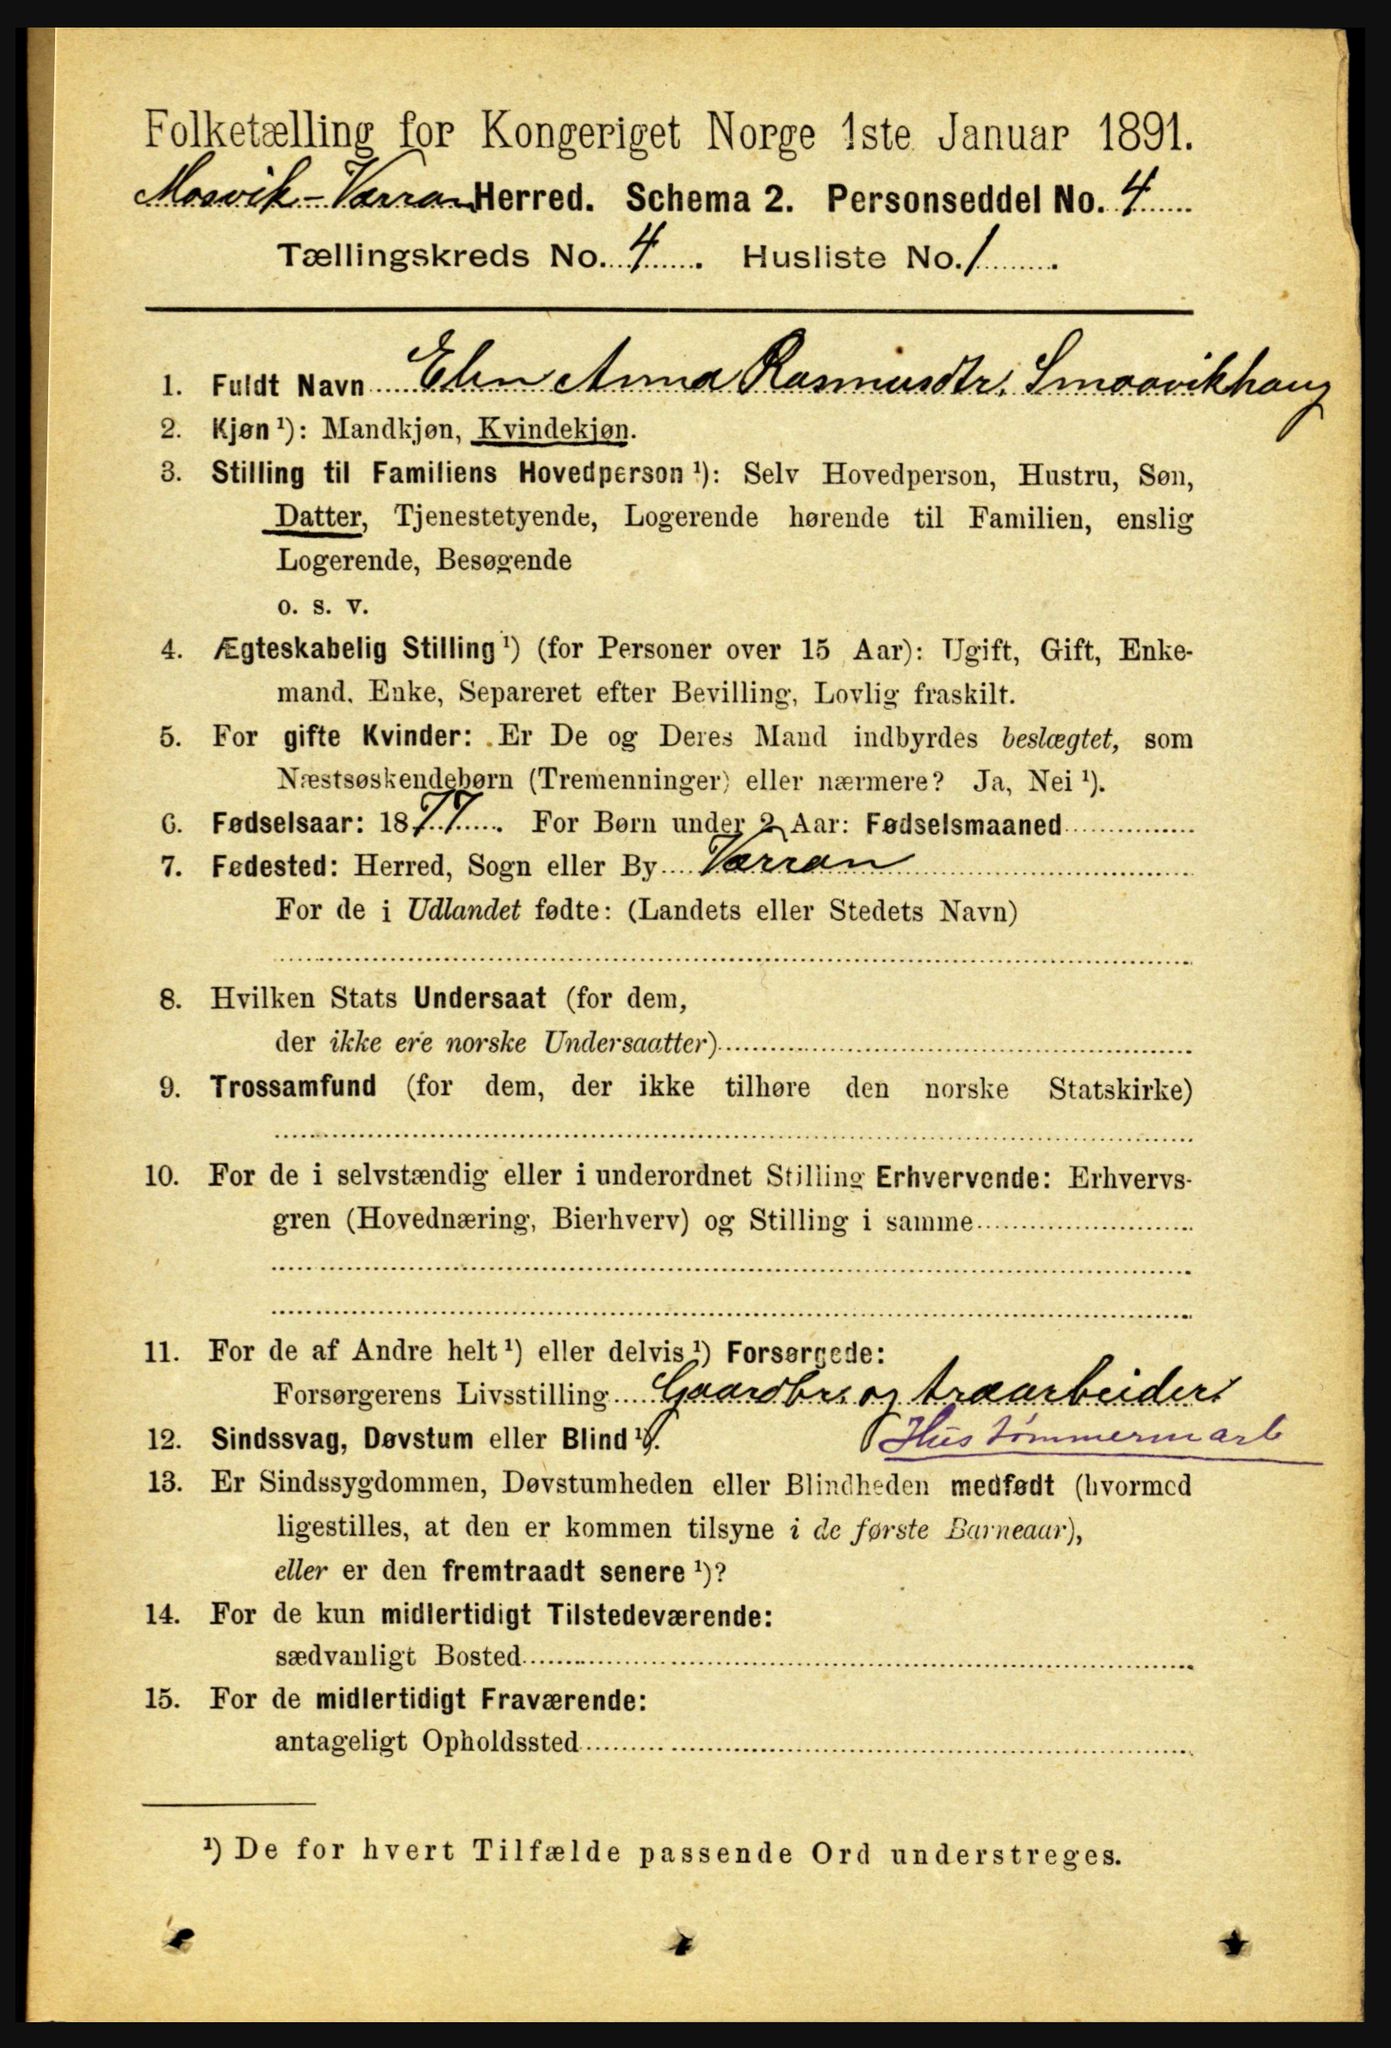 Folketælling for Kongeriget Norge 1ste Januar 1891.
Mosvik-Varran Herred. Schema 2. Personseddel No. 4
Tællingskreds No. 4. Husliste No. 1.
1. Fuldt Navn Elen Anna Rasmusdtr. Smaavikhaug
2. Kjøn ¹): Mandkjøn, Kvindekjøn.
3. Stilling til Familiens Hovedperson ¹): Selv Hovedperson, Hustru, Søn,
Datter, Tjenestetyende, Logerende hørende til Familien, enslig
Logerende, Besøgende
o. s. v.
4. Ægteskabelig Stilling ¹) (for Personer over 15 Aar): Ugift, Gift, Enke-
mand, Enke, Separeret efter Bevilling, Lovlig fraskilt.
5. For gifte Kvinder: Er De og Deres Mand indbyrdes beslægtet, som
Næstsøskendebørn (Tremenninger) eller nærmere? Ja, Nei ¹).
6. Fødselsaar: 1877. For Børn under 2 Aar: Fødselsmaaned
7. Fødested: Herred, Sogn eller By Varran
For de i Udlandet fødte: (Landets eller Stedets Navn)
8. Hvilken Stats Undersaat (for dem,
der ikke ere norske Undersaatter)
9. Trossamfund (for dem, der ikke tilhøre den norske Statskirke)
10. For de i selvstændig eller i underordnet Stilling Erhvervende: Erhvervs-
gren (Hovednæring, Bierhverv) og Stilling i samme
11. For de af Andre helt ¹) eller delvis ¹) Forsørgede:
Forsørgerens Livsstilling Gaardbr. og træarbeider
12. Sindssvag, Døvstum eller Blind ¹). Hustømmermarb
13. Er Sindssygdommen, Døvstumheden eller Blindheden medfødt (hvormed
ligestilles, at den er kommen tilsyne i de første Barneaar),
eller er den fremtraadt senere ¹)?
14. For de kun midlertidigt Tilstedeværende:
sædvanligt Bosted
15. For de midlertidigt Fraværende:
antageligt Opholdssted
¹) De for hvert Tilfælde passende Ord understreges.